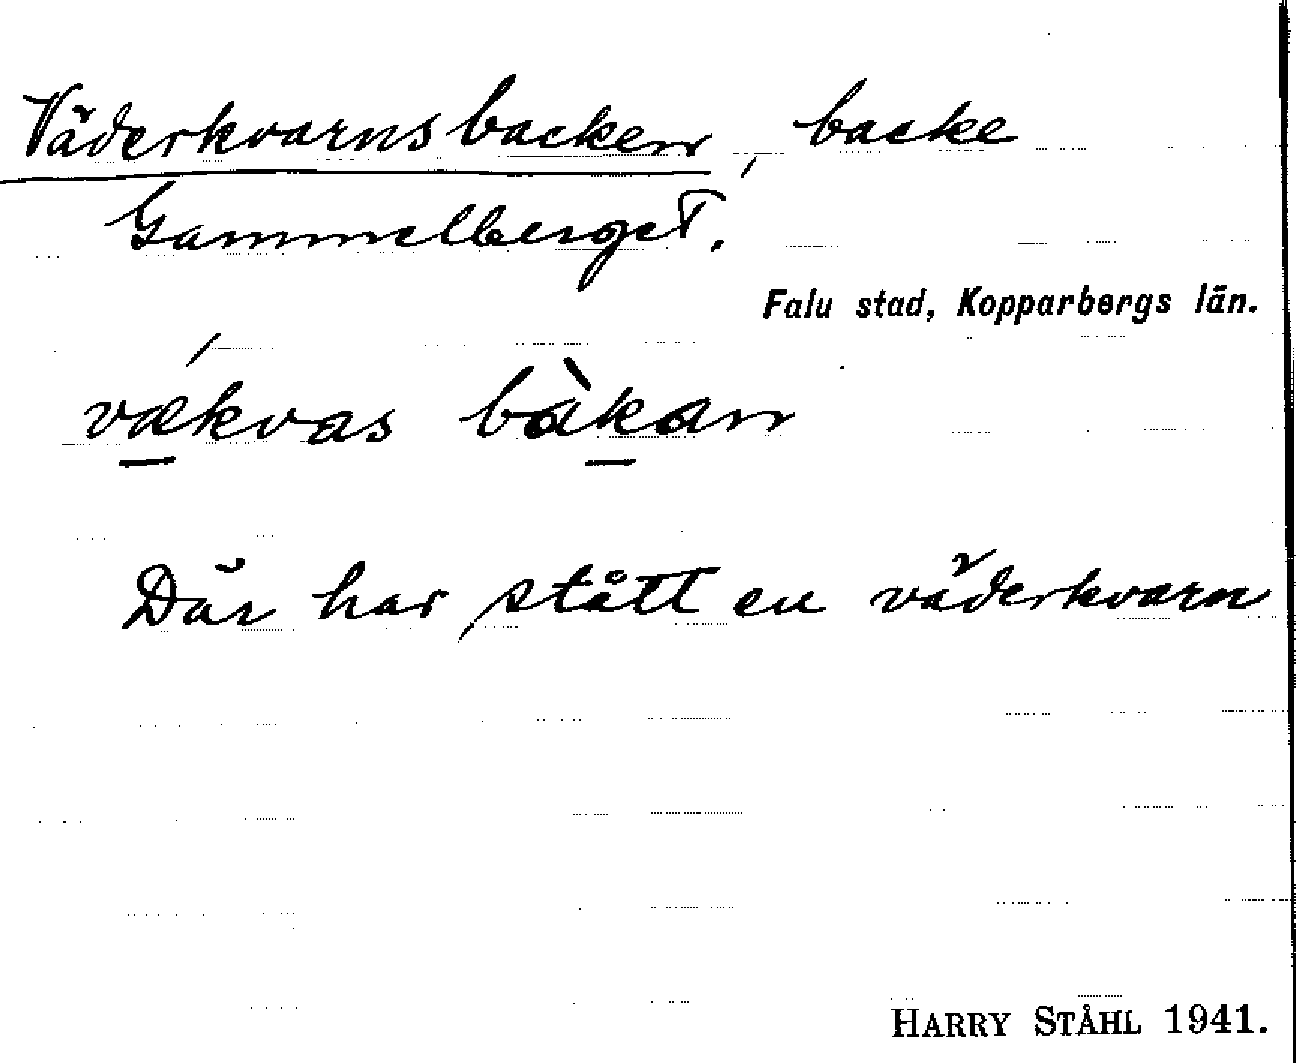 Väderkvarnsbacken, backe
Gammelberget.
Falu stad, Kopparbergs län.
vǽkvas bàkan
Där har stått en väderkvarn
HARRY STÅHL 1941.